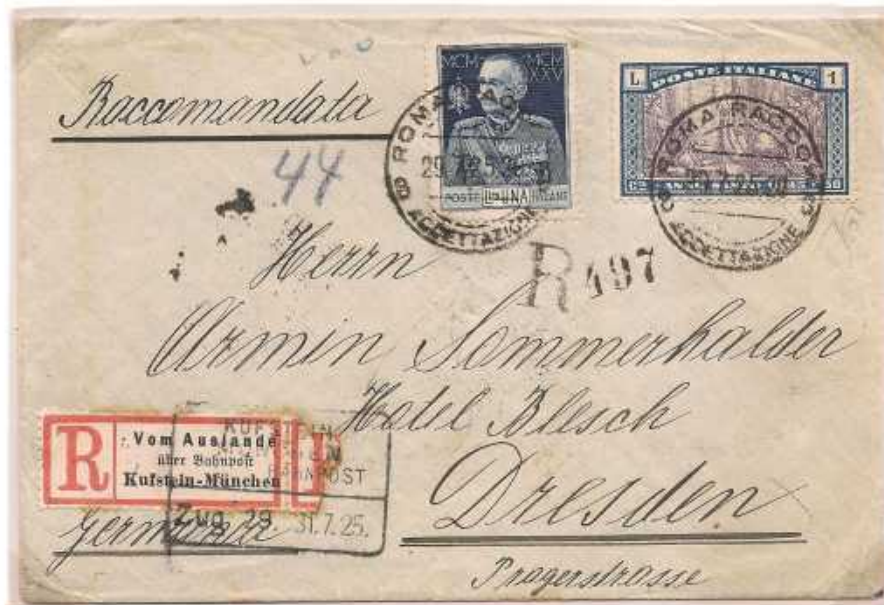 Raccomandata
44
MCM MCM
XXV
POSTE LIRE UNA ITALIANE
L 1
POSTE ITALIANE
ROMA RACCOM
ACCETTAZIONE
ROMA RACCOM
ACCETTAZIONE
R 497
Herrn
Armin Sommerhalder
Hotel Blesch
Dresden
Pragerstrasse
R
Vom Auslande
über Bahnpost
Kufstein-München
KUFSTEIN
BAHNPOST
Zug 19 31.7.25.
Germania